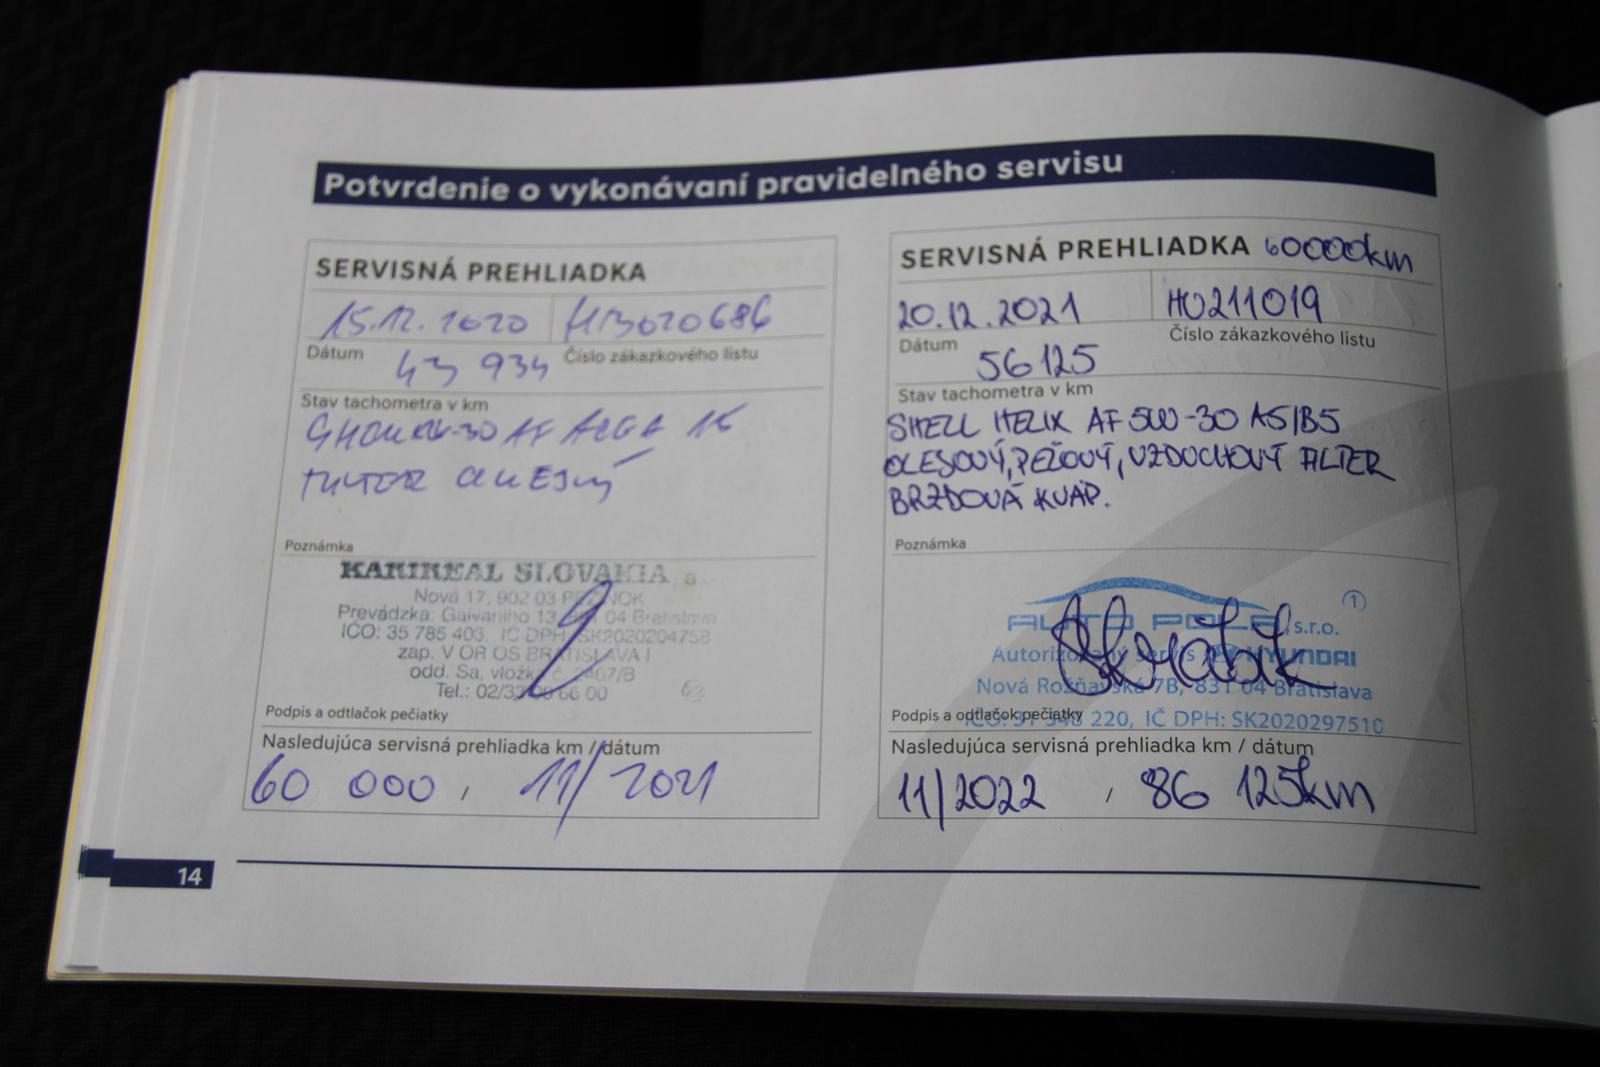 Potvrdenie o vykonávaní pravidelného servisu
SERVISNÁ PREHLIADKA
15.12.2020
Dátum
43 934
Číslo zákazkového listu
Stav tachometra v km
Poznámka
KARIREAL SLOVAKIA, a.
Nová 17, 902 03 PEZINOK
Prevádzka: Galvaniho 13, 04 Bratislava
IČO: 35 785 403, IČ DPH: SK2020204758
zap. V OR OS BRATISLAVA I
odd. Sa, vložka č. /B
Tel.: 02/ 66 00
Podpis a odtlačok pečiatky
Nasledujúca servisná prehliadka km / dátum
60 000 / 11/2021
SERVISNÁ PREHLIADKA 60000km
20.12.2021 HU211019
Dátum
Číslo zákazkového listu
56125
Stav tachometra v km
SHELL HELIX AF 5W-30 A5/B5
OLEJOVÝ, PEĽOVÝ, VZDUCHOVÝ FILTER
BRZDOVÁ KVAP.
Poznámka
1
AUTO POLE, s.r.o.
Autorizovaný servis HYUNDAI
Nová Rožňavská 7B, 831 04 Bratislava
Podpis a odtlačok pečiatky
IČO: 31 220, IČ DPH: SK2020297510
Nasledujúca servisná prehliadka km / dátum
11/2022 / 86 125km
14